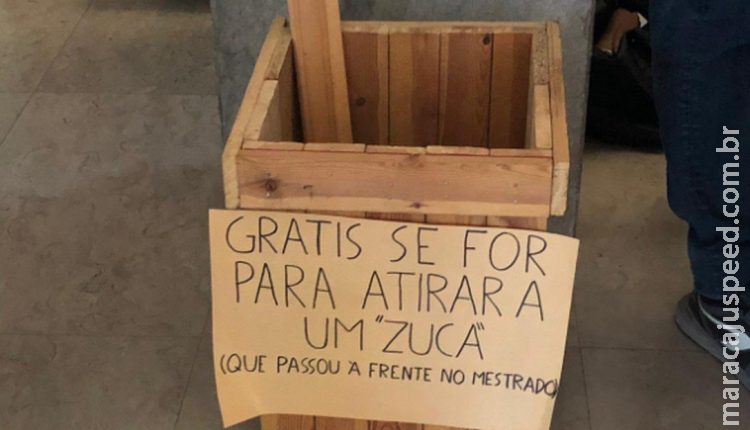 GRATIS SE FOR
PARA ATIRAR A
UM "ZUCA"
(QUE PASSOU À FRENTE NO MESTRADO)
maracajuspeed.com.br